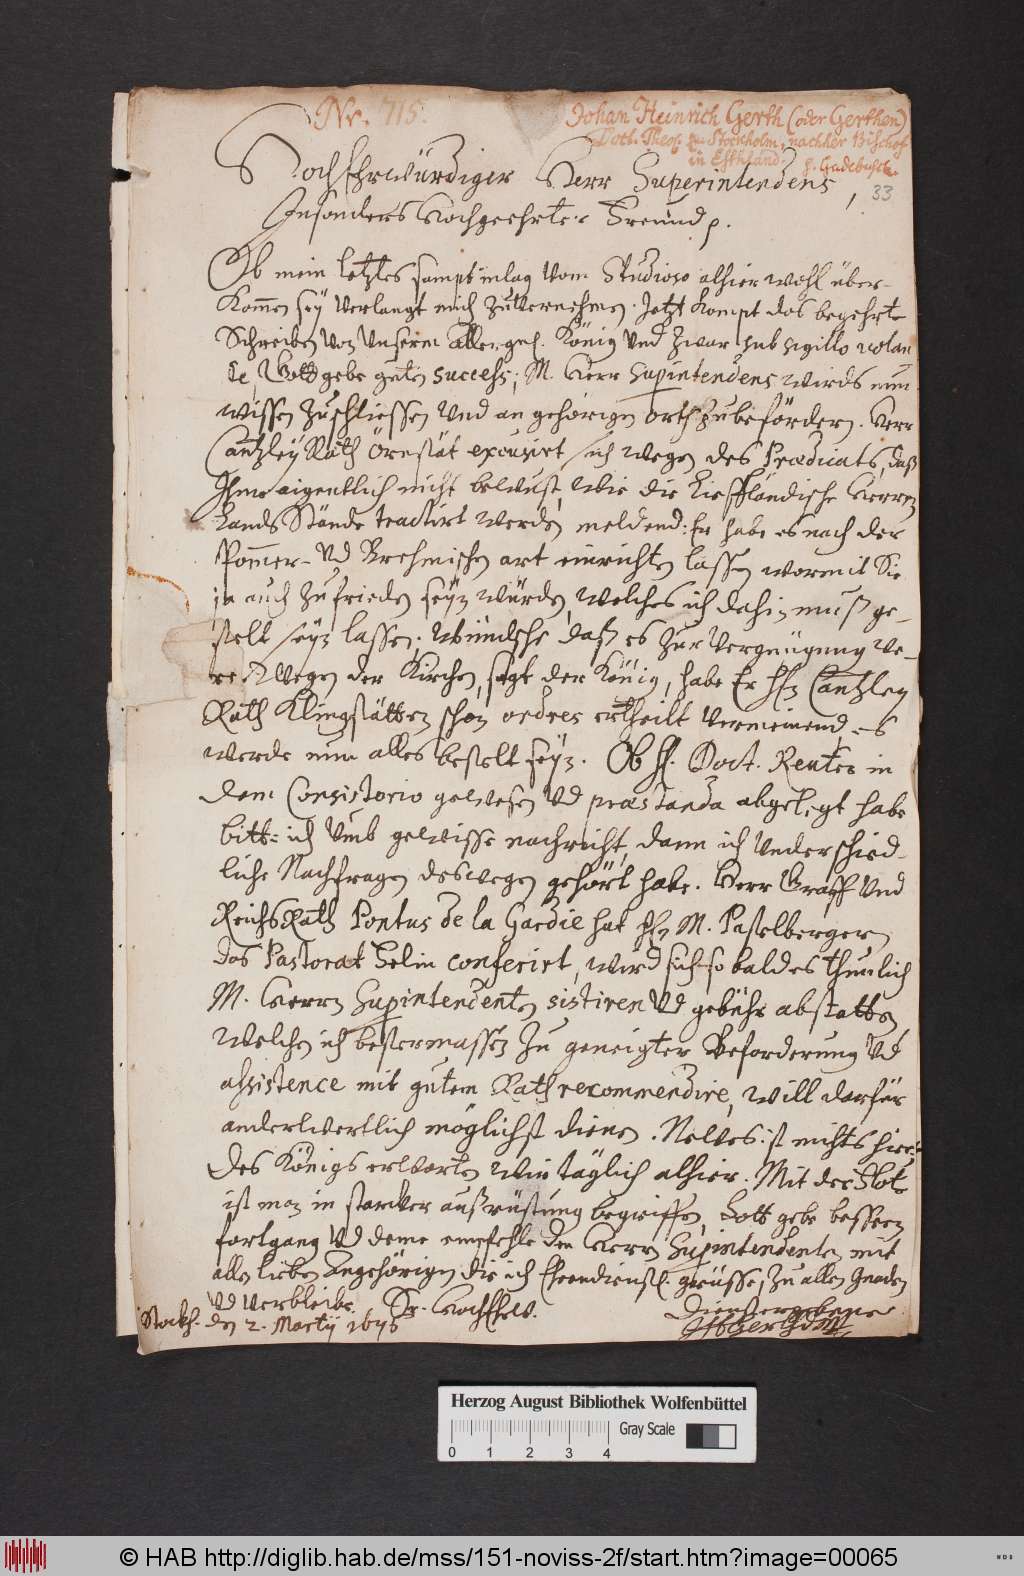 Nr. 715.
Johan Heinrich Gerth (oder Gerthen)
Doct. Theol. zu Stockholm, nachher Bischof
in Esthland. s. Gadebusch
33
HochEhrwürdiger Herr Superintendens,
Insonders Hochgeehrter Freund p.
Ob mein letztes sampt inlag vom Studioso alhier wohl über-
kom̄en sey verlangt mich zuvernehmen. Jetzt kompt das begehrte
Schreiben von unserm allergn. König und zwar sub sigillo volan
te, Gott gebe guten success; M. Herr Supintendens wirds nun
wissen zuschliessen und an gehörigen orth zubefördern. Herr
Cantzley Rath Örnstät excusirt sich wegen des Prædicats, daß
Ihme aigentlich nicht bewust, wie die Liefländische Herren
Lands Stände tractirt werden, meldend: Er habe es nach der
Pom̄er- vd Brehmischen art einrichten lassen wormit Sie
ja auch zufrieden seyn würden, welches ich dahin muß ge-
stelt seyn lassen; wündsche daß es zur vergnügung we-
re. Wegen der Kirchen, sagt der König, habe Er Hn Cantzley
Rath Klingstätten schon ordres ertheilt vermeinend, es
werde nun alles bestelt seyn. Ob H. Doct. Reuter in
dem Consistorio gewesen vd præstanda abgelegt habe
bitte ich umb gewisse nachricht, dann ich underschied-
liche Nachfragen deswegen gehört habe. Herr Graff und
ReichsRath Pontus de la Gardie hat Hn M. Pastelbergern
das Pastorat Helin conferirt, wird sich so bald es thunlich
M. Herrn Supintendenten sistiren vd gebühr abstatten,
welchen ich bestermassen zu geneigter Beforderung vd
assistence mit gutem Rath recommendire, will darfür
anderwertlich möglichst dienen. Newes ist nichts hier:
des Königs erwarten wir täglich alhier. Mit der Flote
ist man in starcker außrüstung begriffen, Gott gebe bessern
fortgang vd deme empfehle den Herrn Supintendenten mit
allen lieben Angehörigen, die ich Ehrendienstl. grüsse, zu allen Gnaden
vd verbleibe, Sr. HochEhrw.
Stockh. den 2. Martij 1676
Dienstergebene
JHGerthDM
Herzog August Bibliothek Wolfenbüttel
0 1 2 3 4
Gray Scale
© HAB http://diglib.hab.de/mss/151-noviss-2f/start.htm?image=00065